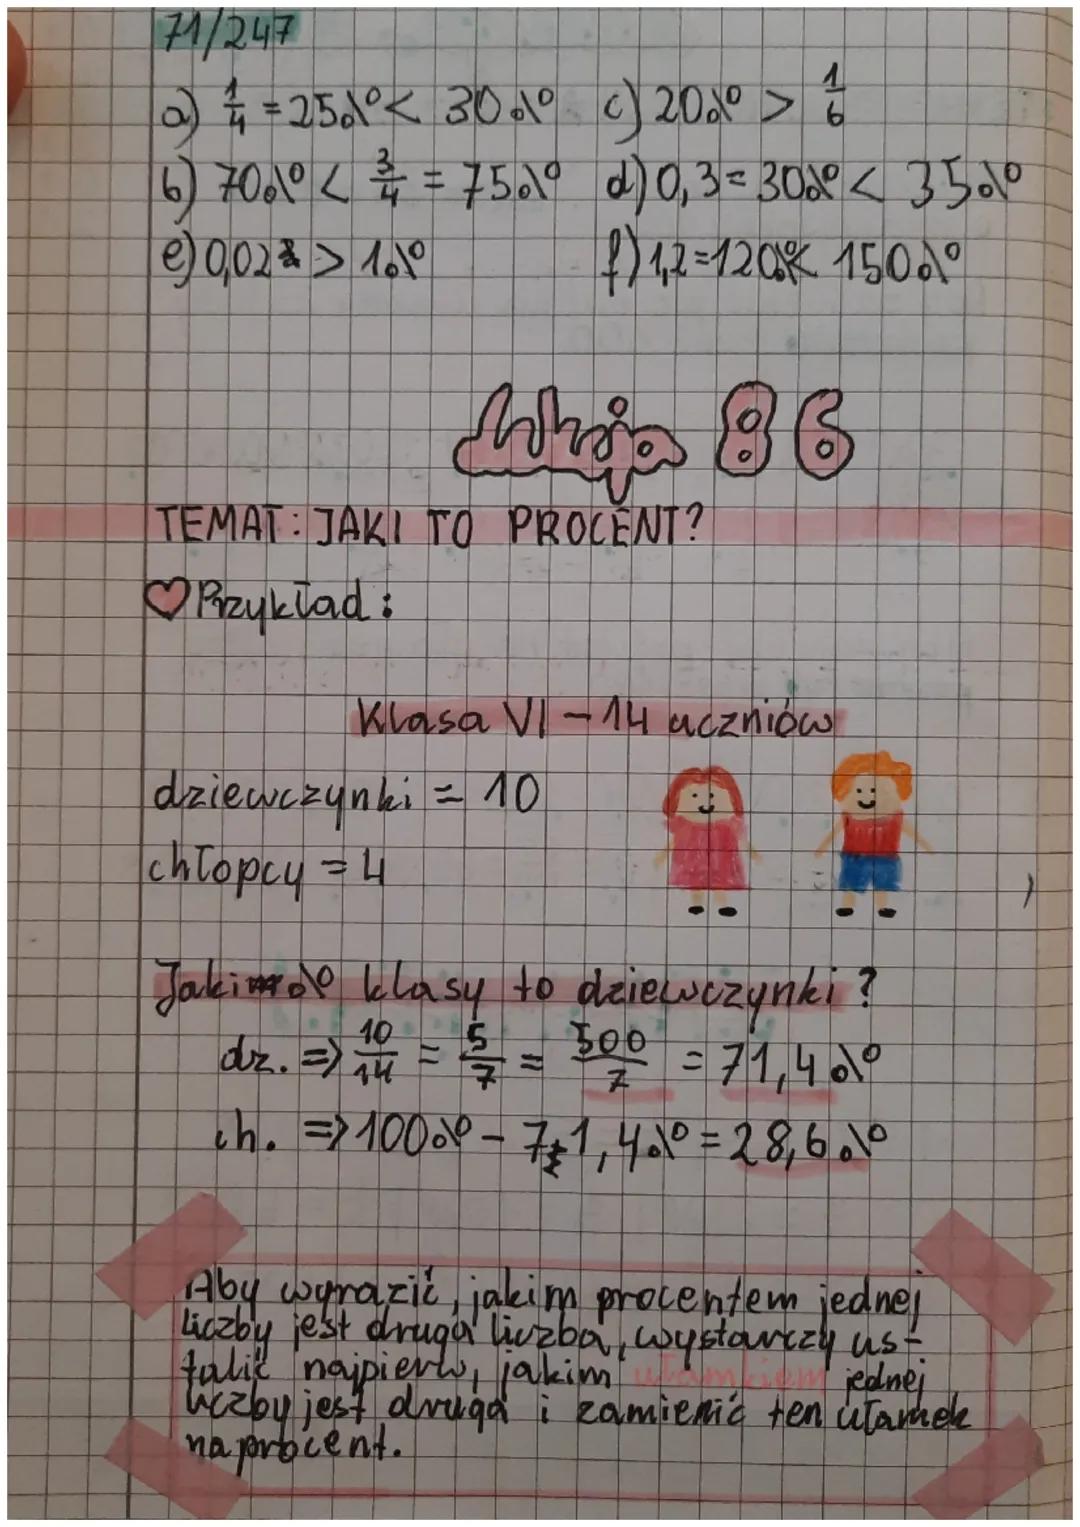 71/247
a) 1/4 = 25% < 30% c) 20% > 1/6
b) 70% < 3/4 = 75% d) 0,3 = 30% < 35%
e) 0,02 > 1% f) 1,2 = 120% < 150%
Lekcja 86
TEMAT: JAKI TO PROCENT?
Przykład:
Klasa VI - 14 uczniów
dziewczynki = 10
chłopcy = 4
Jakim % klasy to dziewczynki?
dz. => 10/14 = 5/7 = 500/7 = 71,4%
ch. => 100% - 71,4% = 28,6%
Aby wyrazić, jakim procentem jednej
liczby jest druga liczba, wystarczy us-
talić najpierw, jakim ułamkiem jednej
liczby jest druga i zamienić ten ułamek
na procent.